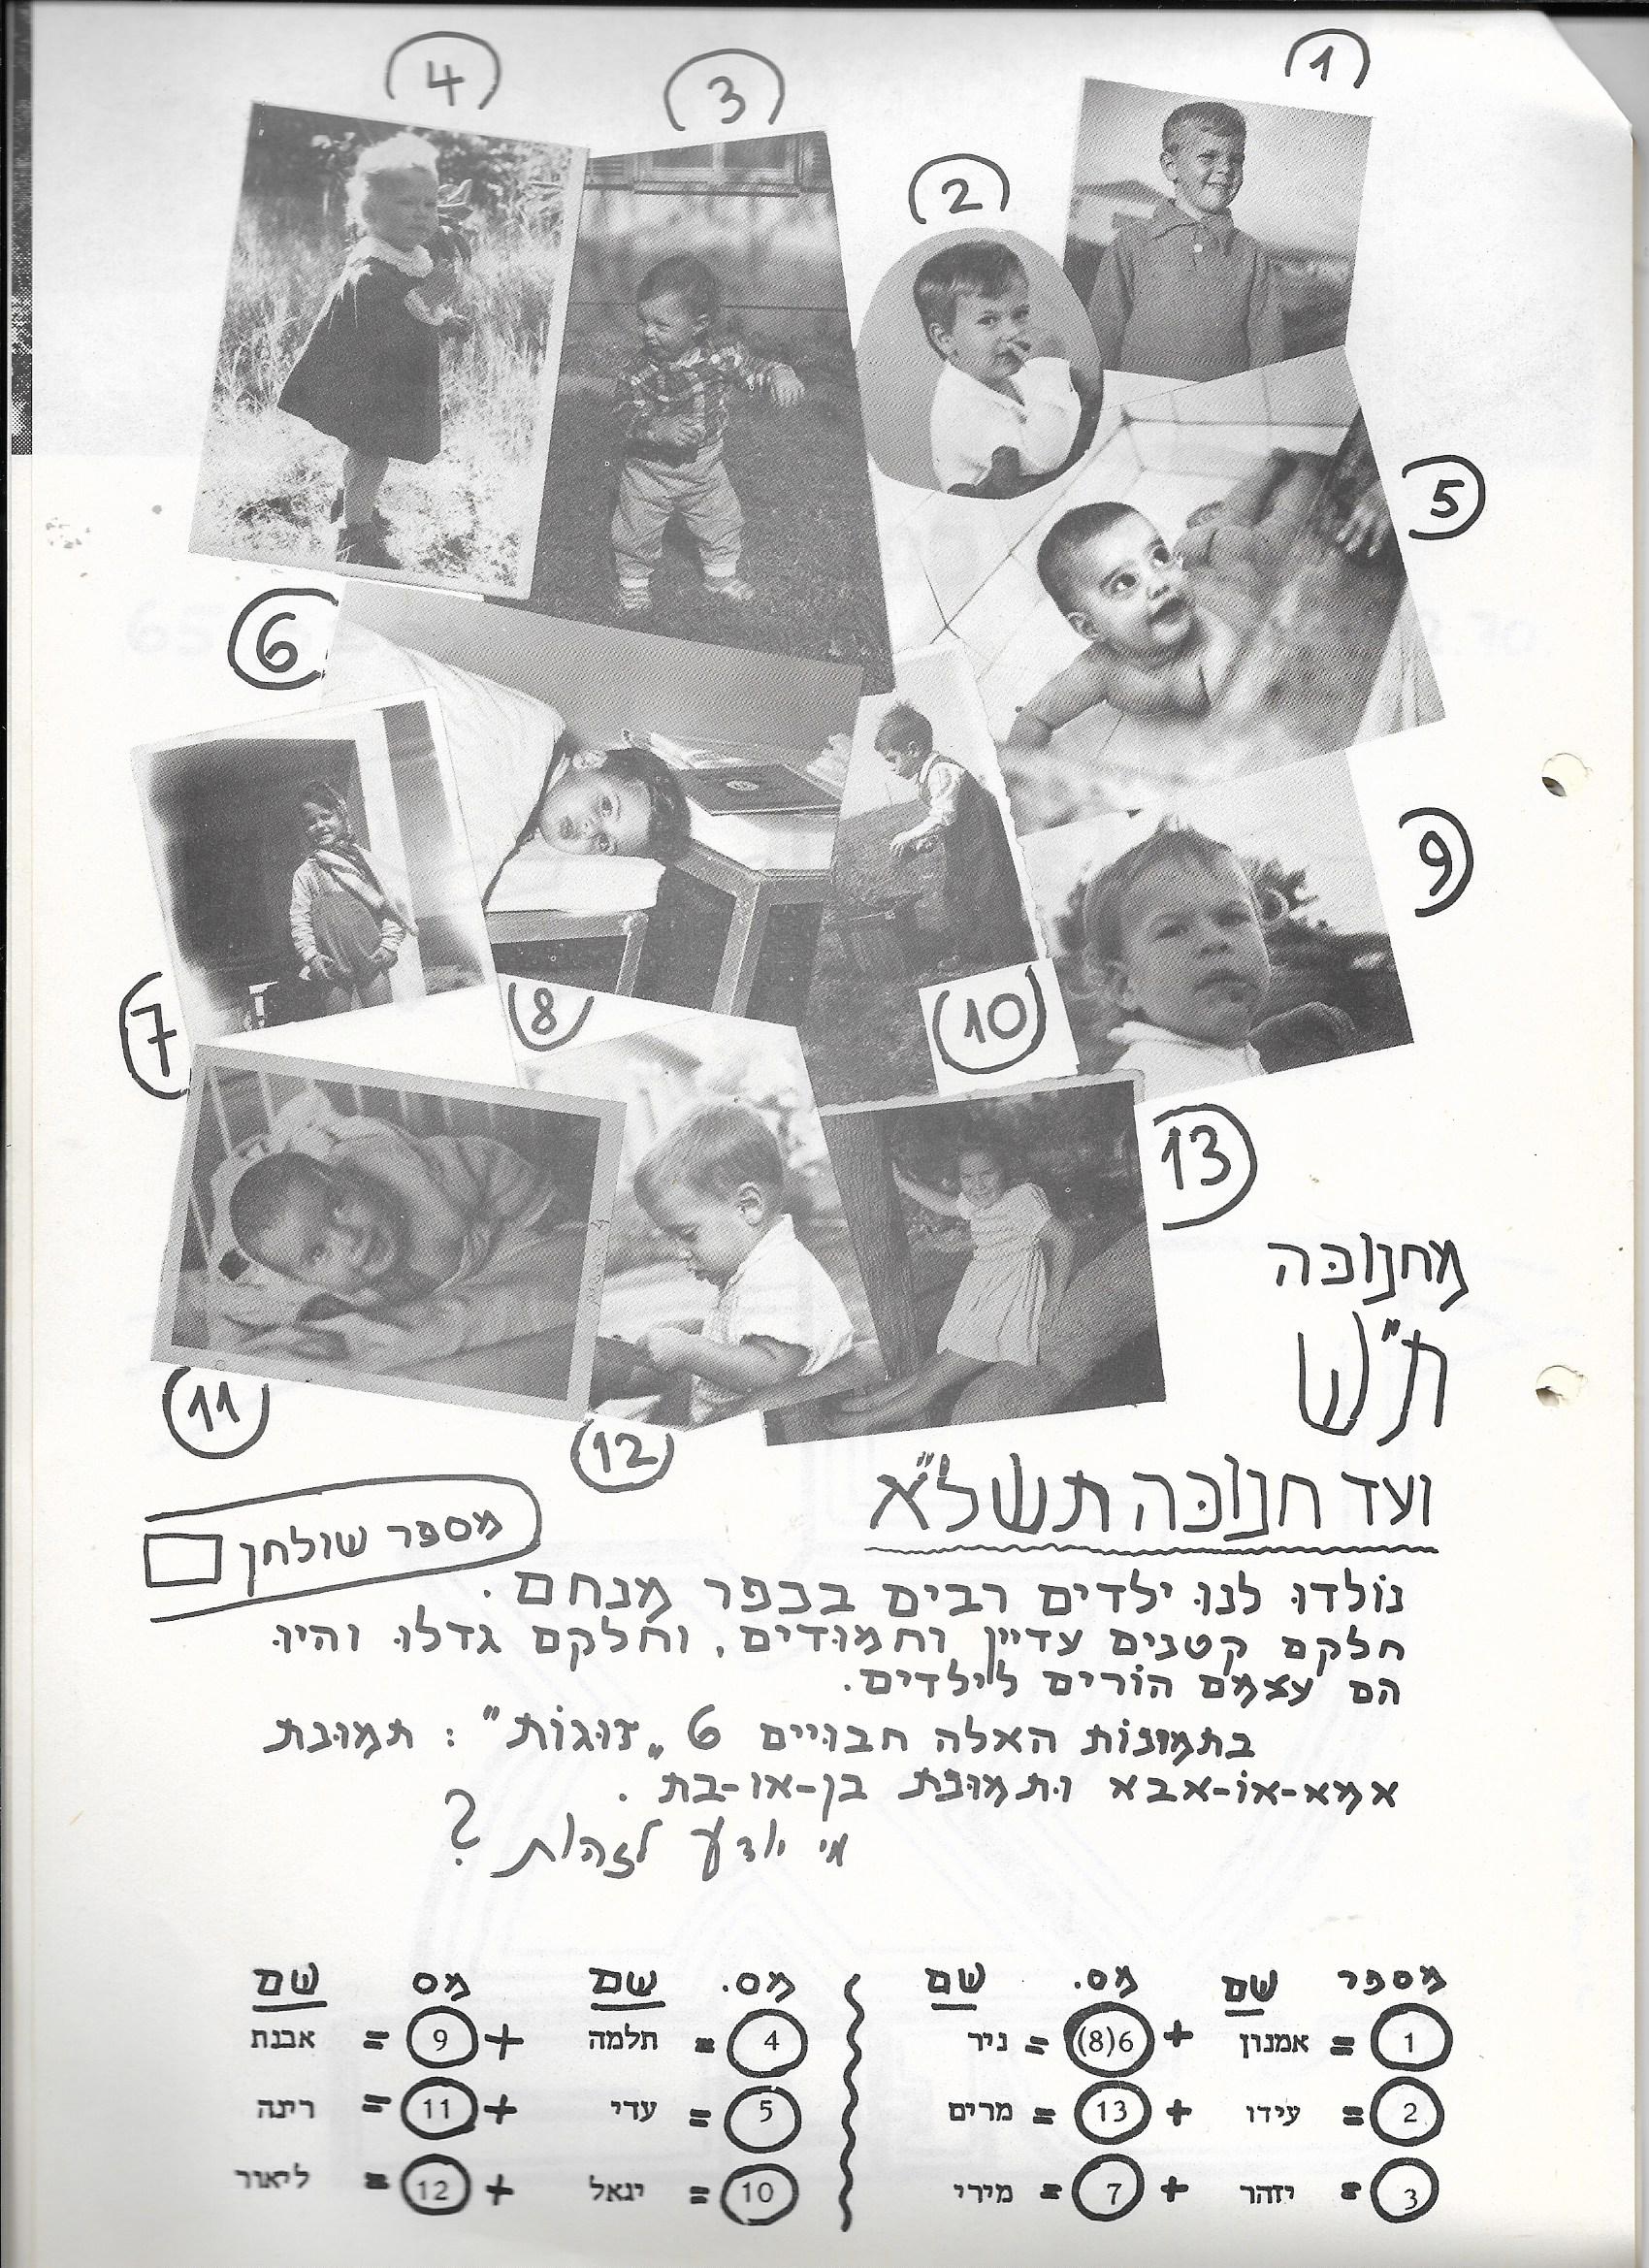 4
3
1
2
5
6
9
7
8
10
13
11
12
מחנוכה
ת"ש
ועד חנוכה תשל"א
מספר שולחן
נולדו לנו ילדים רבים בכפר מנחם.
חלקם קטנים עדיין וחמודים, וחלקם גדלו והיו
הם עצמם הורים לילדים.
בתמונות האלה חבויים 6 "זוגות": תמונת
אמא-או-אבא ותמונת בן-או-בת.
מי יודע לזהות?
מספר שם מס. שם מס. שם מס שם
1 = אמנון + 6(8) = ניר 4 = תלמה + 9 = אבנת
2 = עידו + 13 = מרים 5 = עדי + 11 = רינה
3 = יזהר + 7 = מירי 10 = יגאל + 12 = ליאור